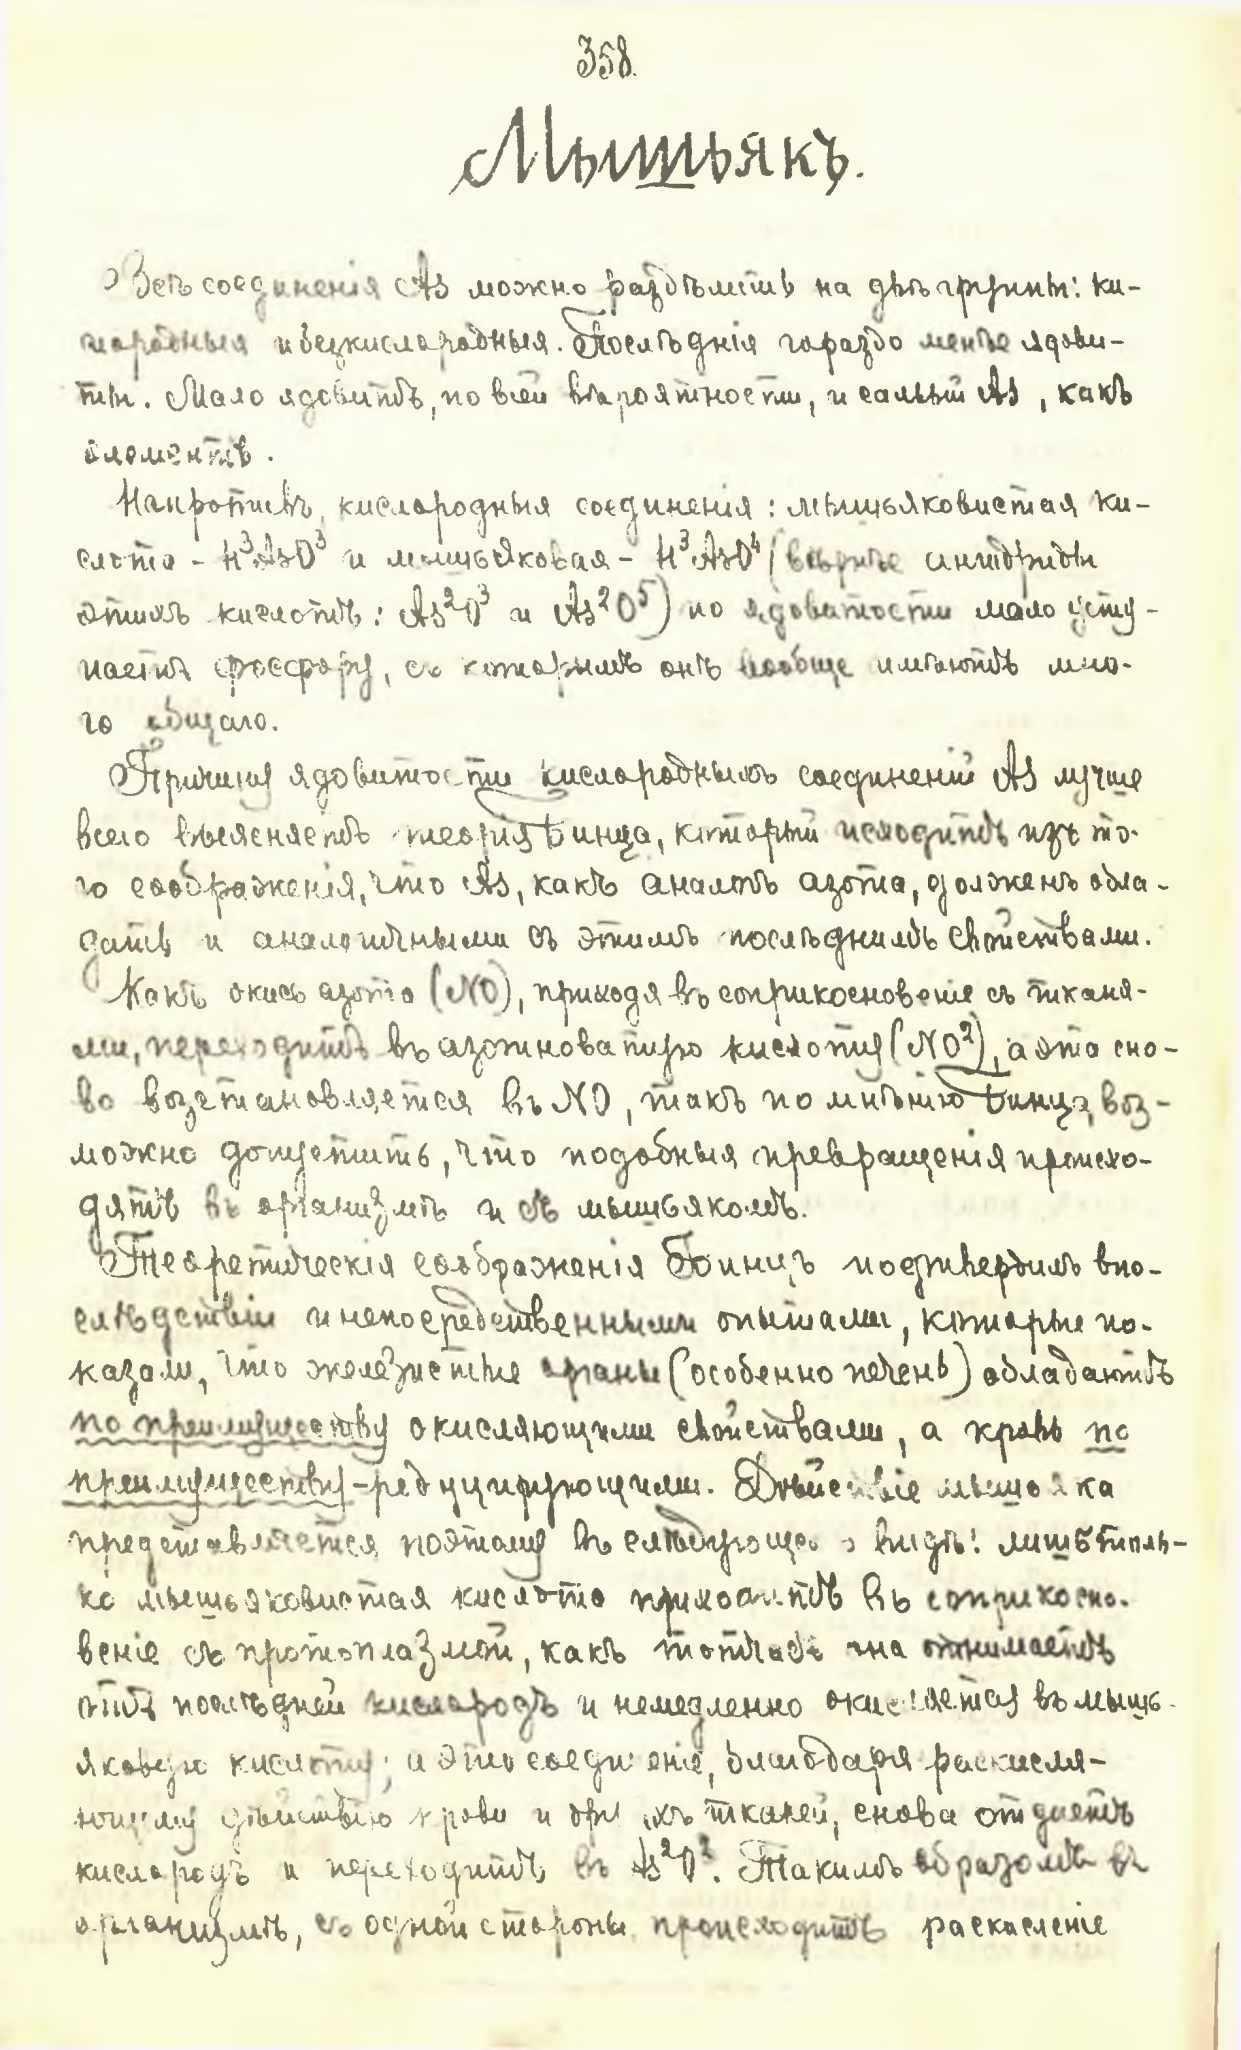 358.
Мышьякъ.
Всѣ соединенія As можно раздѣлить на двѣ группы: ки-
слородныя и безкислородныя. Послѣднія гораздо менѣе ядови-
ты. Мало ядовитъ, по всей вѣроятности, и самый As, какъ
элементъ.
Напротивъ, кислородныя соединенія: мышьяковистая ки-
слота - H³AsO³ и мышьяковая - H³AsO⁴ (вѣрнѣе ангидриды
этихъ кислотъ: As²O³ и As²O⁵) по ядовитости мало усту-
паетъ фосфору, съ которымъ онъ вообще имѣютъ мно-
го общаго.
Причину ядовитости кислородныхъ соединеній As лучше
всего выясняетъ теорія Бинца, который исходитъ изъ то-
го соображенія, что As, какъ аналогъ азота, долженъ обла-
дать и аналогичными съ этимъ послѣднимъ свойствами.
Какъ окись азота (NO), приходя въ соприкосновеніе съ тканя-
ми, переходитъ въ азотноватую кислоту (NO²), а эта сно-
ва возстановляется въ NO, такъ по мнѣнію Бинца, воз-
можно допустить, что подобныя превращенія происхо-
дятъ въ организмѣ и съ мышьякомъ.
Теоретическія соображенія Бинцъ подтвердилъ впо-
слѣдствіи и непосредственными опытами, которые по-
казали, что железистые органы (особенно печень) обладаютъ
по преимуществу окисляющими свойствами, а кровь по
преимуществу - редуцирующими. Дѣйствіе мышьяка
представляется поэтому въ слѣдующемъ видѣ: лишь толь-
ко мышьяковистая кислота приходитъ въ соприкосно-
веніе съ протоплазмой, какъ тотчасъ она отнимаетъ
отъ послѣдней кислородъ и немедленно окисляется въ мышь-
яковую кислоту; и это соединеніе, благодаря раскисля-
ющему дѣйствію крови и другихъ тканей, снова отдаетъ
кислородъ и переходитъ въ As²O³. Такимъ образомъ въ
организмѣ, съ одной стороны, происходитъ раскисленіе